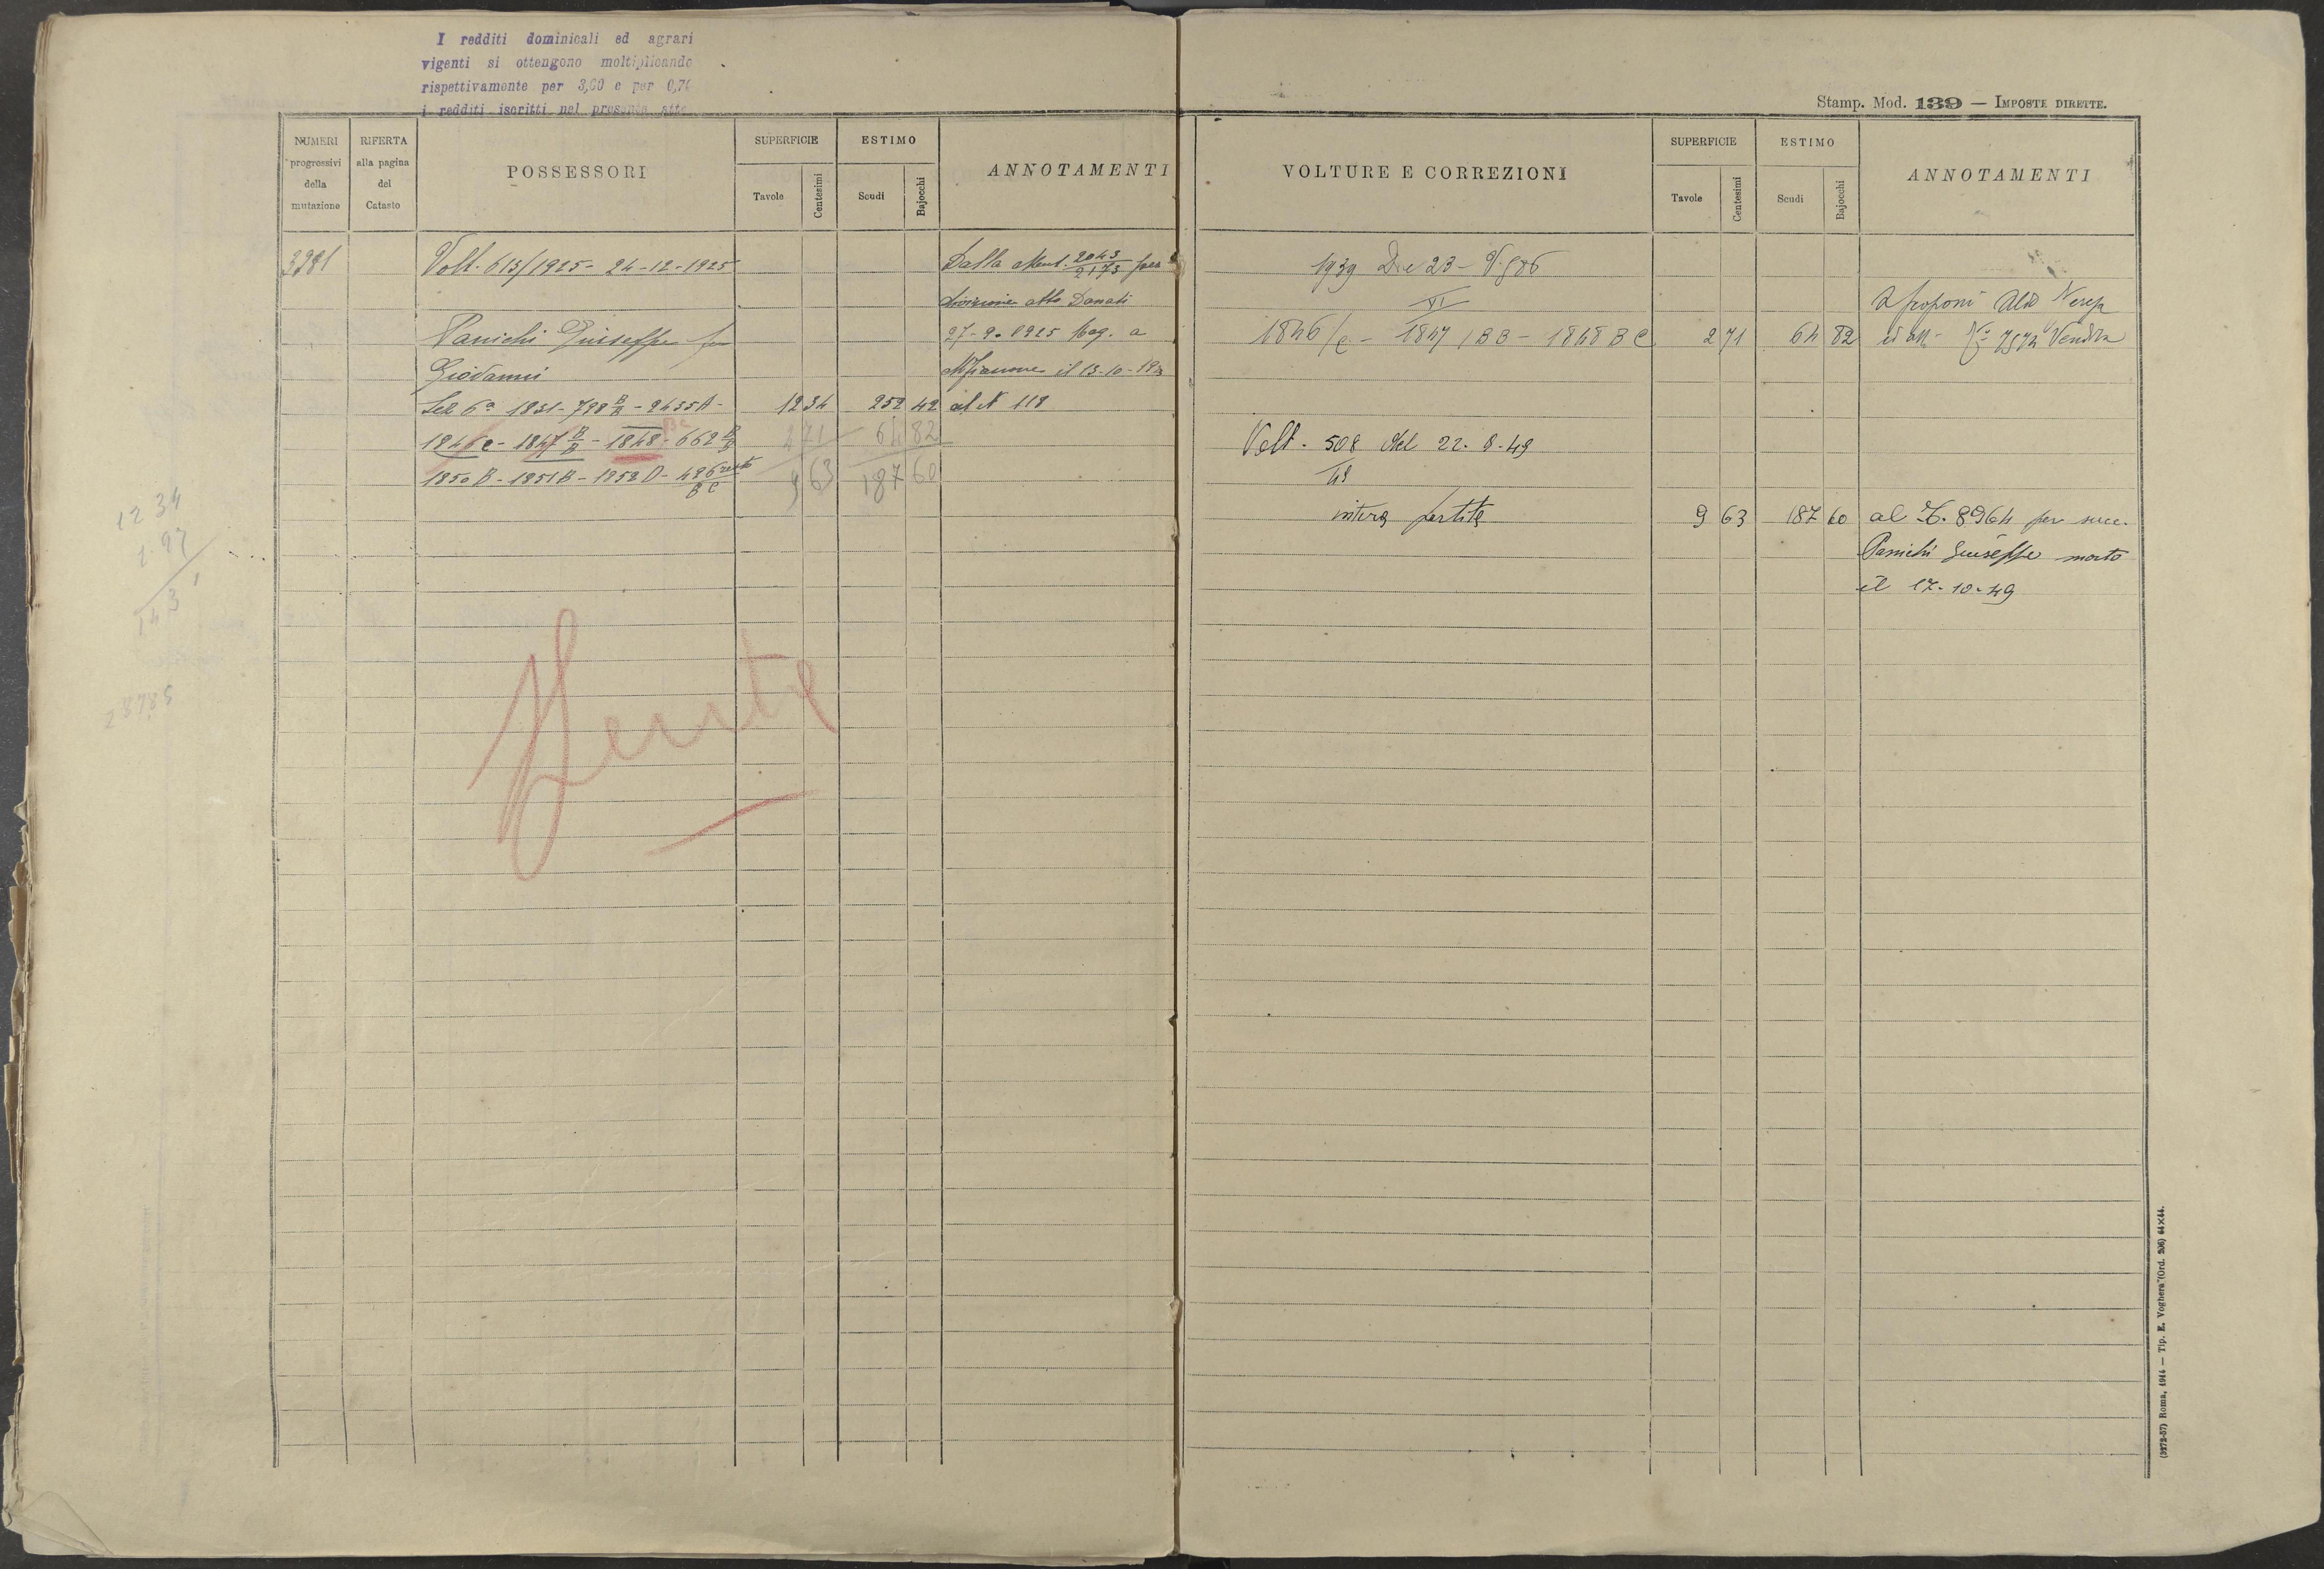 I redditi dominicali ed agrari
vigenti si ottengono moltiplicando
rispettivamente per 3,60 e per 0,70
i redditi iscritti nel presente atto
Stamp. Mod. 139 — IMPOSTE DIRETTE.
NUMERI progressivi della mutazione
RIFERTA alla pagina del Catasto
POSSESSORI
SUPERFICIE
Tavole Centesimi
ESTIMO
Scudi Bajocchi
ANNOTAMENTI
VOLTURE E CORREZIONI
SUPERFICIE
Tavole Centesimi
ESTIMO
Scudi Bajocchi
ANNOTAMENTI
3981 Volt. 613/1925 - 24-12-1925 Dalla Mut. 2043/2173 per
divisione atto Donati
Panichi Giuseppe fu 27-9-1925 Reg. a
Giovanni il 13-10-
Sez 6a 1831 - 798 B/B - 2435A - 12 34 252 42 al N 118
1846 C - 1847 B/B - 1848 BC - 662 2 71 64 82
1850 B - 1851 B - 1952 D - 486 resto/BC 9 63 187 60
12 34
1 97
14 31
28785
1939 Dic 23 - V. 586
XI
1846/C - 1847/BB - 1848 BC 2 71 64 82
Volt. 508 del 22-8-49
48
intera partita 9 63 187 60 al N. 8964 per succ.
Panichi Giuseppe morto
il 17-10-49
(3272-57) Roma, 1914 — Tip. E. Voghera (Ord. 206) 44×44.